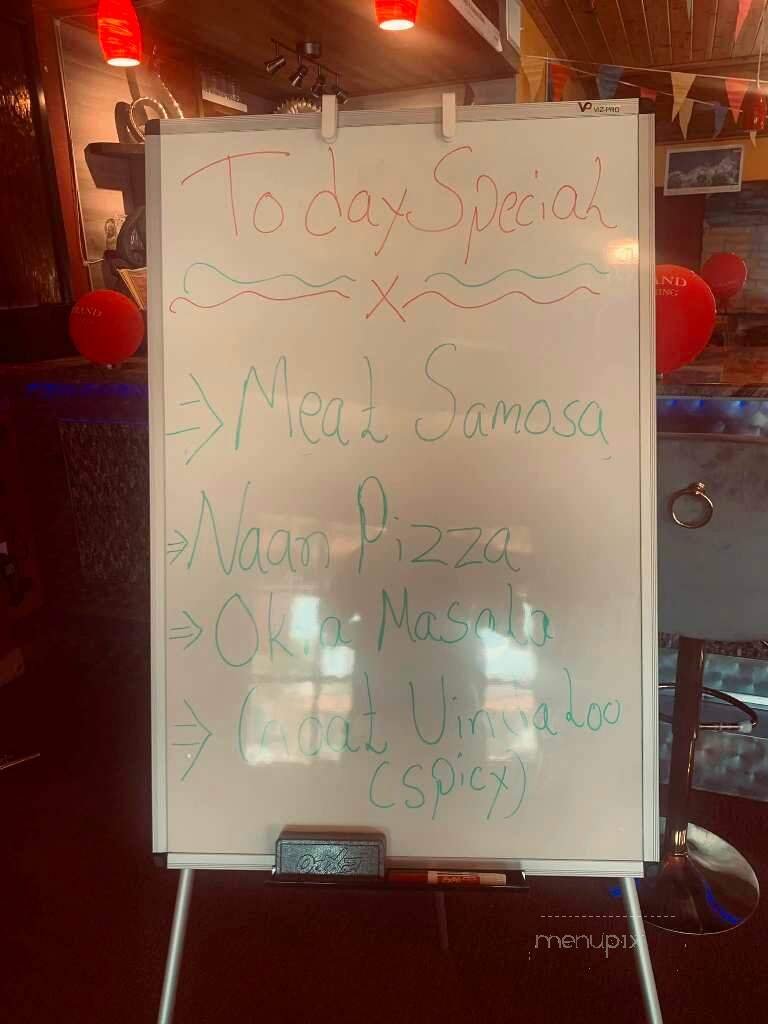 VIZ-PRO
Today Special
X
⇒ Meat Samosa
⇒ Naan Pizza
⇒ Okra Masala
⇒ Goat Vindaloo
(spicy)
RAND
AND
ING
Expo
menupix